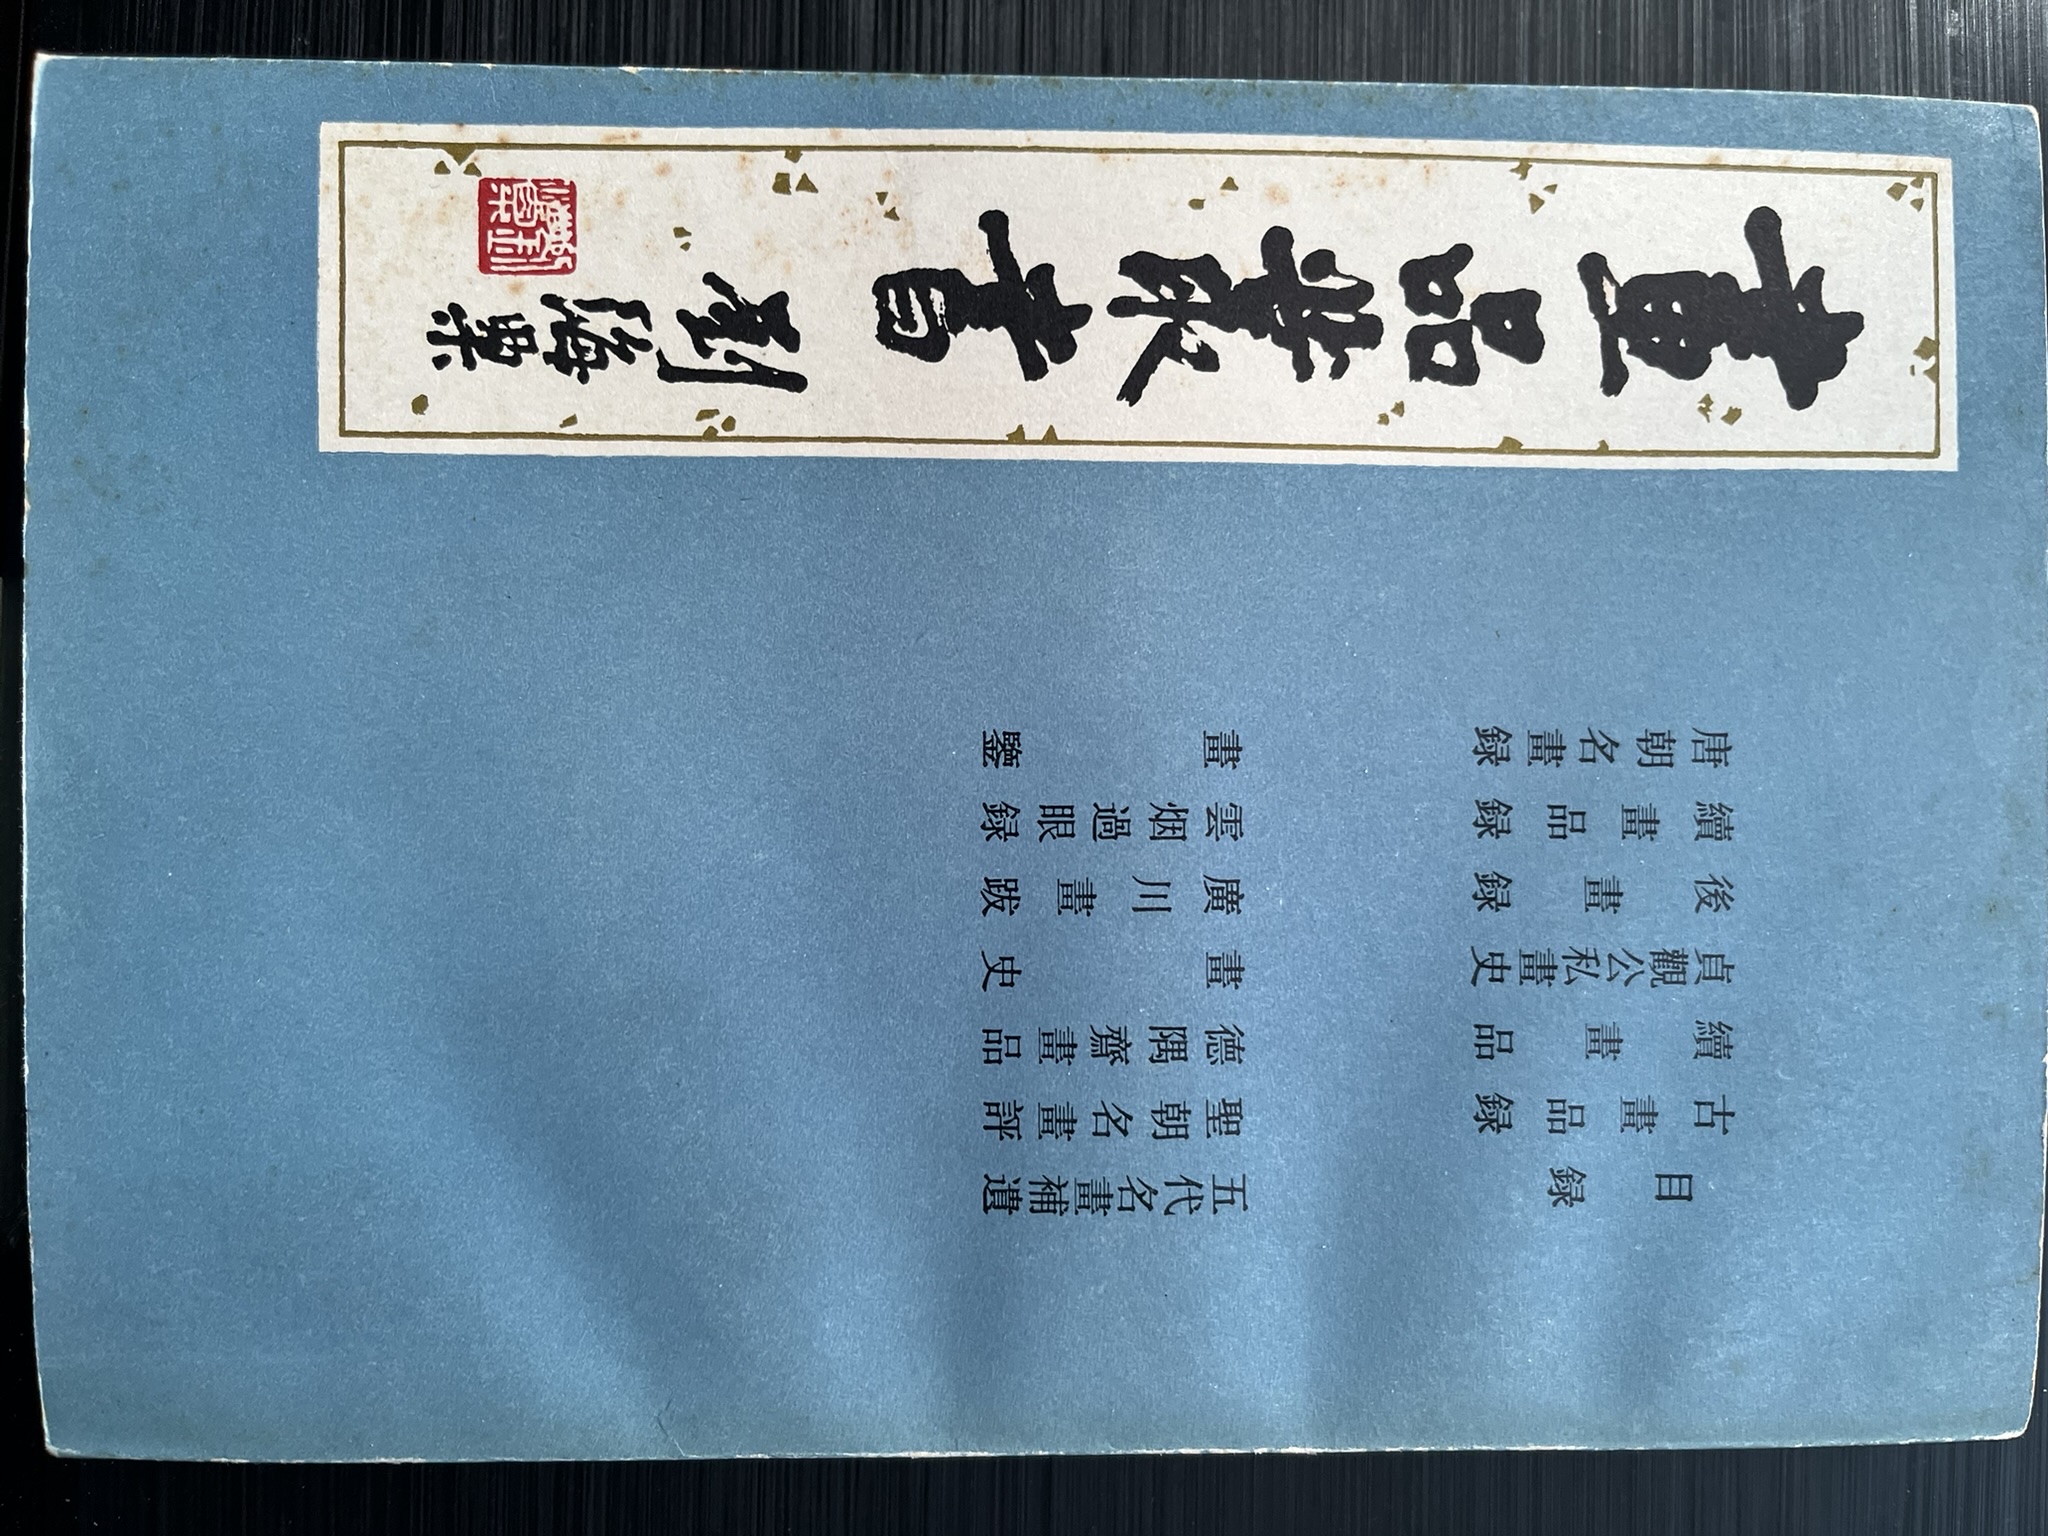 目録
古畫品録
續畫品
貞觀公私畫史
後畫録
續畫品録
唐朝名畫録
五代名畫補遺
聖朝名畫評
德隅齋畫品
畫史
廣川畫跋
雲烟過眼録
畫鑒
畫品叢書
劉海粟